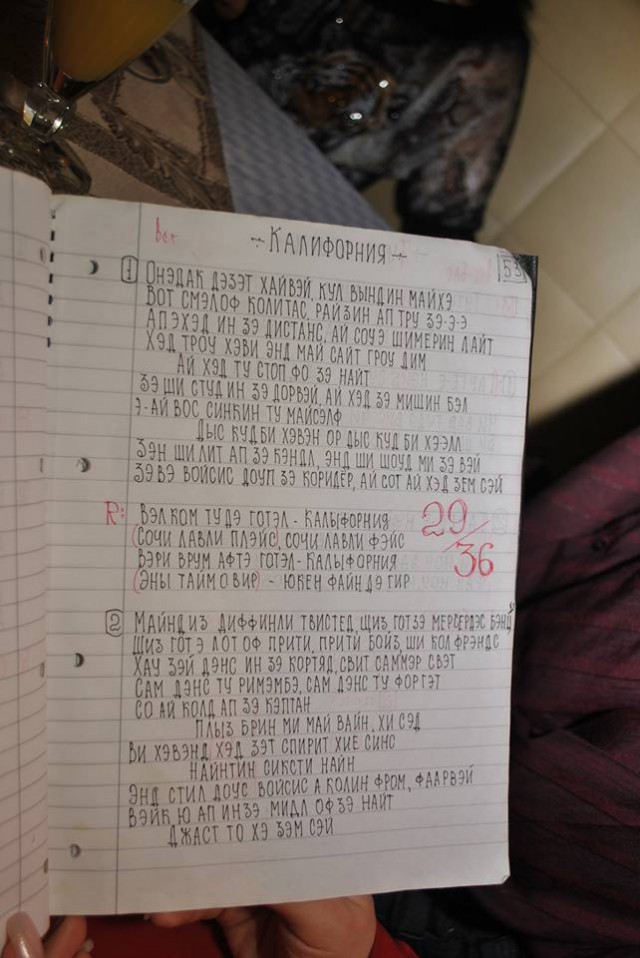 - КАЛИФОРНИЯ -
53
1 ОНЭДАК ДЭЗЭТ ХАЙВЭЙ, КУЛ ВЫНДИН МАЙХЭ
ВОТ СМЭЛОФ КОЛИТАС, РАЙЗИН АП ТРУ ЗЭ-Э-Э
АП ЭХЭД ИН ЗЭ ДИСТАНС, АЙ СОУЭ ШИМЕРИН ЛАЙТ
ХЭД ТРОУ ХЭВИ ЭНД МАЙ САЙТ ГРОУ ДИМ
АЙ ХЭД ТУ СТОП ФО ЗЭ НАЙТ
ЗЭ ШИ СТУД ИН ЗЭ ДОРВЭЙ, АЙ ХЭД ЗЭ МИШИН БЭЛ
Э-АЙ ВОС СИНКИН ТУ МАЙСЭЛФ
ДЫС КУД БИ ХЭВЭН ОР ДЫС КУД БИ ХЭЭЛЛ
ЗЭН ШИ ЛИТ АП ЗЭ КЭНДЛ, ЭНД ШИ ШОУД МИ ЗЭ ВЭЙ
ЗЭ ВЭ ВОЙСИС ДОУП ЗЭ КОРИДЁР, АЙ СОТ АЙ ХЭД ЗЕМ СЭЙ
R: ВЭЛ КОМ ТУ ДЭ ГОТЭЛ - КАЛЫФОРНИЯ
(СОЧИ ЛАВЛИ ПЛЭЙС), СОЧИ ЛАВЛИ ФЭЙС
ВЭРИ ВРУМ АФТЭ ГОТЭЛ - КАЛЫФОРНИЯ
(ЭНЫ ТАЙМ О ВИР) - ЮКЕН ФАЙН ДЭ ГИР
29/36
2 МАЙНД ИЗ ДИФФИНЛИ ТВИСТЕД, ЩИЗ, ГОТ ЗЭ МЕРСЕРДЭС БЭНД
ШИЗ ГОТ Э ЛОТ ОФ ПРИТИ, ПРИТИ БОЙЗ, ШИ КОЛ ФРЭНДС
ХАУ ЗЭЙ ДЭНС ИН ЗЭ КОРТЯД, СВИТ САММЭР СВЭТ
САМ ДЭНС ТУ РИМЭМБЭ, САМ ДЭНС ТУ ФОРГЭТ
СО АЙ КОЛД АП ЗЭ КЭПТАН
ПЛЫЗ БРИН МИ МАЙ ВАЙН, ХИ СЭД
ВИ ХЭВЭНД ХЭД ЗЭТ СПИРИТ ХИЕ СИНС
НАЙНТИН СИКСТИ НАЙН
ЭНД СТИЛ ДОУС ВОЙСИС А КОЛИН ФРОМ, ФААРВЭЙ
ВЭЙК Ю АП ИН ЗЭ МИДЛ ОФ ЗЭ НАЙТ
ДЖАСТ ТО ХЭ ЗЭМ СЭЙ